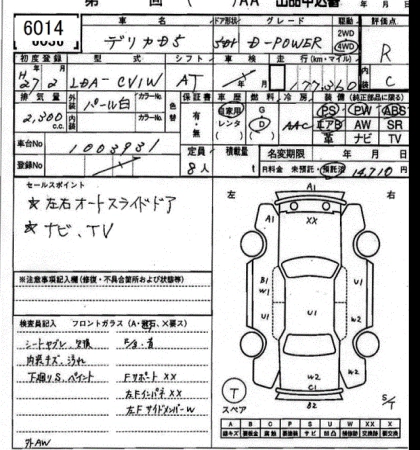 第 回 ( )AA 出品申込書 年 月 日
6014
車名 ドア形状 グレード 駆動 評価点
デリカD5 5ドア D-POWER 2WD 4WD R
初度登録 型式 シフト 車検 走行(km・マイル) 内装
H27.2 LDA-CV1W AT 年 月 177,360 C
排気量 外装 カラーNo. 色替 保証書 車歴 燃料 冷房 装備 (純正部品に限る)
2,300 c.c. パール白 有・無 自家用 レンタ ( ) G D AAC PS PW ABS
内装 カラーNo. エアB AW SR
革 ナビ TV
車台No 1003931 定員 積載量 名変期限 年 月 日
登録No 8人 t R料金 未預託・預託済 14,710 円
セールスポイント
☆ 左右オートスライドドア
☆ ナビ、TV
※注意事項記入欄 (修復・不具合箇所および状態等)
検査員記入 フロントガラス (A・飛石、×要ス)
シートヤブレ、欠損
内装キズ、汚れ
下廻りS、ペイント
Fサポート XX
左Fインパネ XX
左FサイドメンバーW
外AW
左 右
A1
XX
B1
W1
U1
U1
U1
W2
W2
W2
C1
B2
T
スペア
A B C P S U W X XX
線キズ